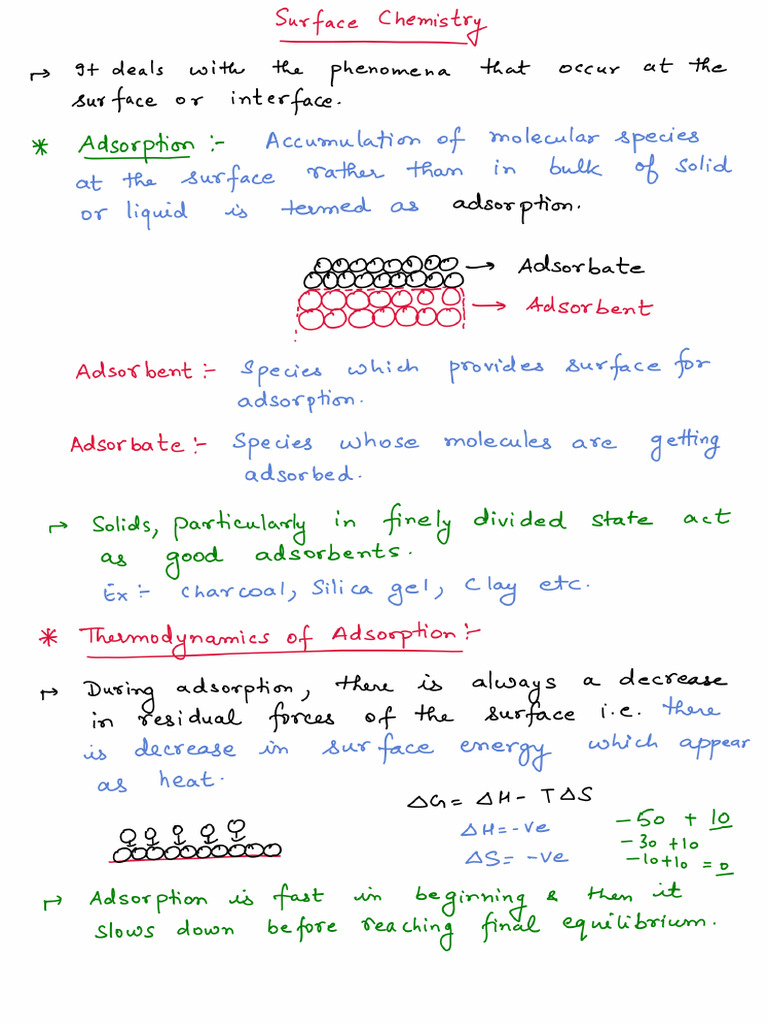 Surface Chemistry
↦ It deals with the phenomena that occur at the
surface or interface.
* Adsorption :- Accumulation of molecular species
at the surface rather than in bulk of solid
or liquid is termed as adsorption.
→ Adsorbate
→ Adsorbent
Adsorbent :- Species which provides surface for
adsorption.
Adsorbate :- Species whose molecules are getting
adsorbed.
↦ Solids, particularly in finely divided state act
as good adsorbents.
Ex :- Charcoal, Silica gel, Clay etc.
* Thermodynamics of Adsorption :-
↦ During adsorption, there is always a decrease
in residual forces of the surface i.e. there
is decrease in surface energy which appear
as heat.
ΔG = ΔH - TΔS
ΔH = -ve
ΔS = -ve
-50 + 10
-30 + 10
-10 + 10 = 0
↦ Adsorption is fast in beginning & then it
slows down before reaching final equilibrium.